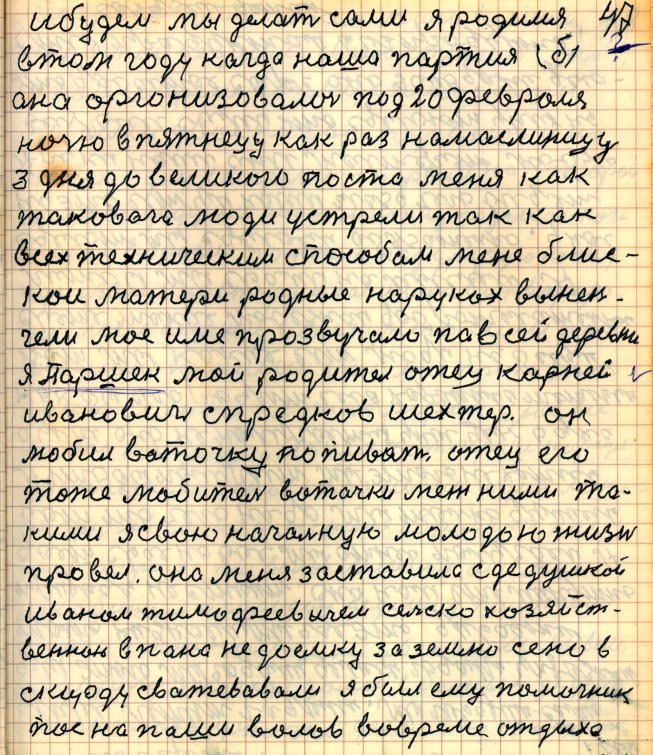 ибудем мы делат сами я родился 47
втом году кагда наша партия (б)
ана организовалос под 20 февроля
ночю впятнецу как раз намаслиницу
3 дня до великого поста меня как
таковага люди устрели так как
всех техническим способам мене блис-
кои матери родные наруках вынен-
чели мое име прозвучало павсей деревни
я Паршек мой родител отец Карней
иванович спредков шехтер. он
любил воточку попиват. отец его
тоже любител вотачки меж ними та-
кими я свою началную молодою жизн
провел. она меня заставила с дедушкой
иваном тимофеевычем селско хозяйст-
венном впана недоемку за землю сено в
скироду сватевавали я был ему помочник
пас на паши волов вовреме отдыха